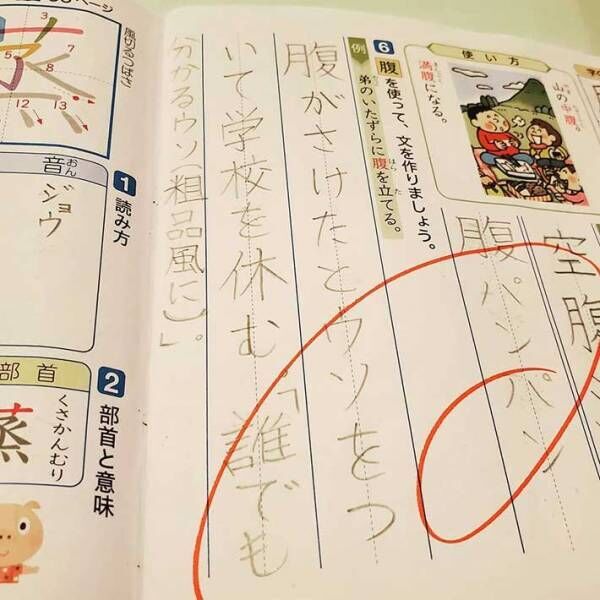 使い方
山の中腹。
満腹になる。
空腹
腹パンパン
6 腹を使って、文を作りましょう。
例 弟のいたずらに腹を立てる。
腹がさけたとウソをつ
いて学校を休む。「誰でも
分かるウソ(粗品風に)」。
ページ
風切るつばさ
3
5
7
12
13
1 読み方
音
おん
ジョウ
2 部首と意味
部首
くさかんむり
蒸